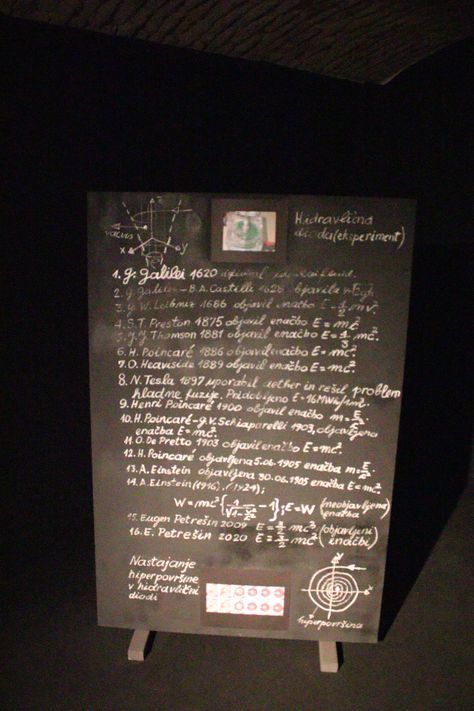 vacuis
x
y
Hidravlična
dioda (eksperiment)
1. G. Galilei 1620
2. G. Galilei - B.A. Castelli 1628 objavila
3. G. W. Leibniz 1686 objavil enačbo E = 1/2 mv².
4. S.T. Preston 1875 objavil enačbo E = mc².
5. J.J. Thomson 1881 objavil enačbo E = 4/3 mc².
6. H. Poincaré 1886 objavil enačbo E = mc².
7. O. Heaviside 1889 objavil enačbo E = mc².
8. N. Tesla 1897 uporabil aether in rešil problem
hladne fuzije. Pridobljeno E = 16MWh/1m².
9. Henri Poincaré 1900 objavil enačbo m = E/c².
10. H. Poincaré - G.V. Schiaparelli 1903, objavljena
enačba E = mc².
11. O. De Pretto 1903 objavil enačbo E = mc².
12. H. Poincaré objavljena 5.06.1905 enačba m = E/c².
13. A. Einstein objavljena 30.06.1905 enačba E = mc².
14. A. Einstein (1916), (1921);
W = mc² { 1/√1-v²/c² - 1 } ; E = W (neobjavljena enačba
15. Eugen Petrešin 2009 mc³ (objavljeni
16. E. Petrešin 2020 mc² (enačbi)
Nastajanje
hiperpovršine
v hidravlični
diodi
x
hiperpovršina